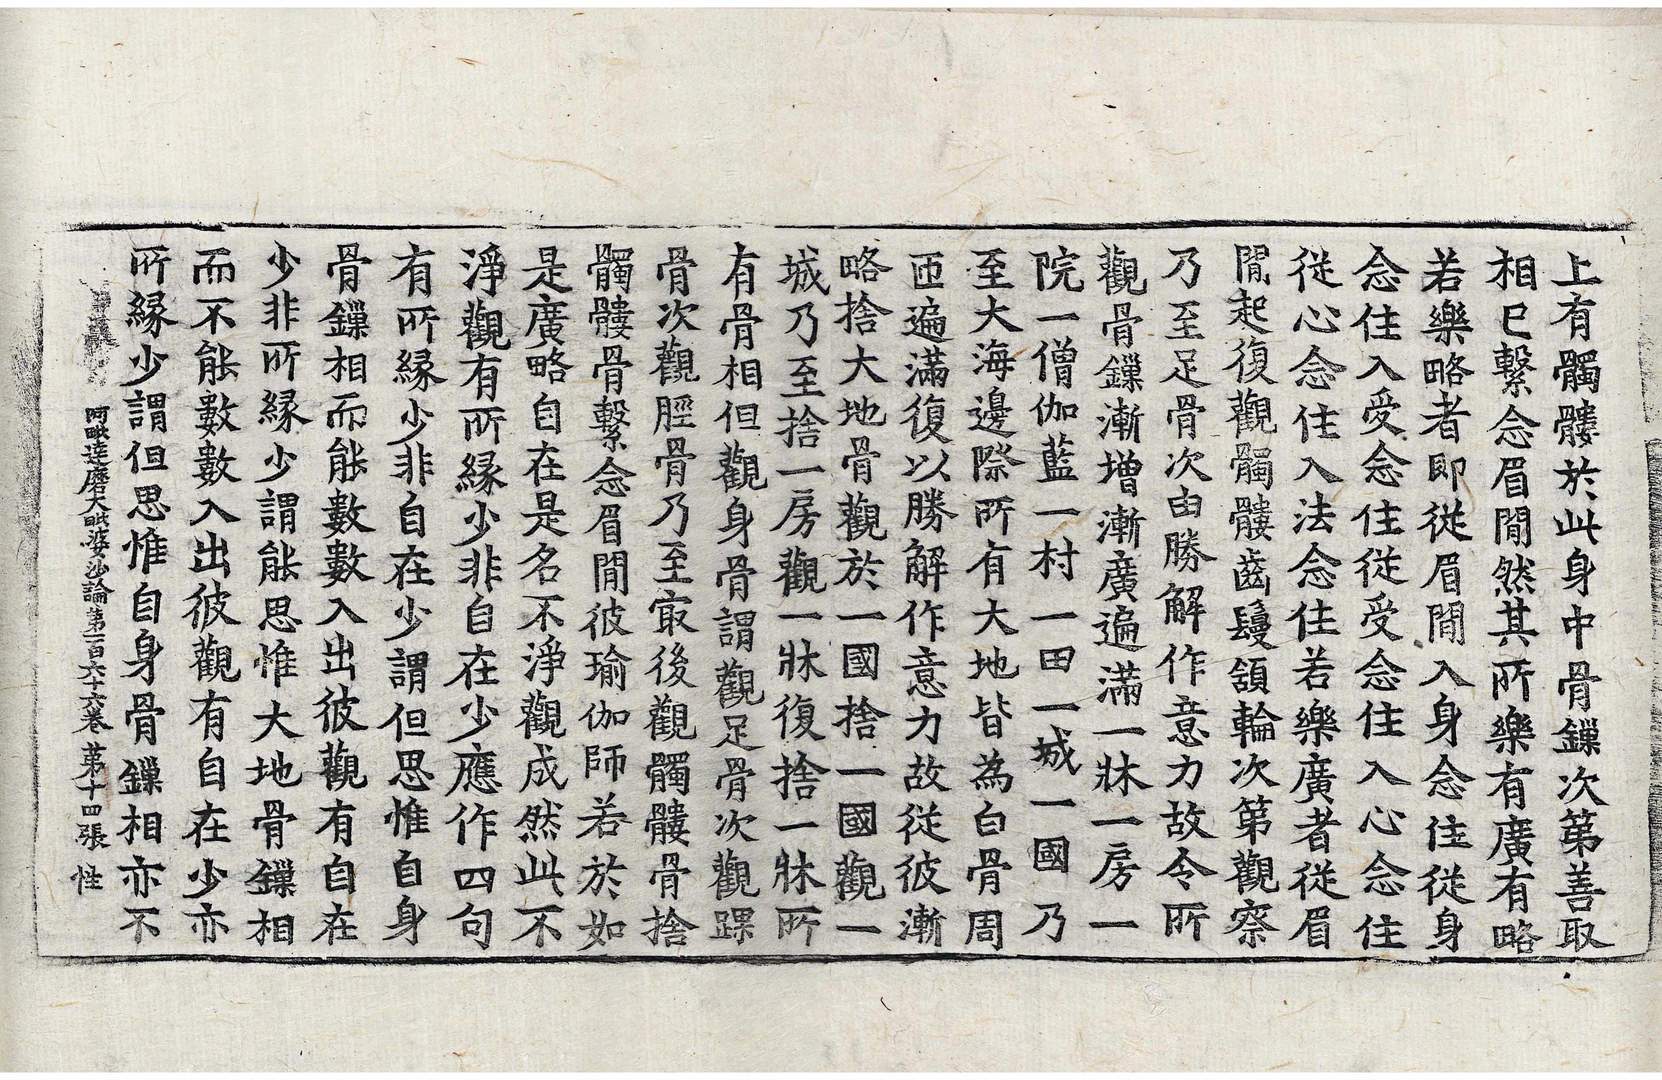 上有髑髏於此身中骨鏁次第善取
相已繫念眉間然其所樂有廣有略
若樂略者即從眉間入身念住從身
念住入受念住從受念住入心念住
從心念住入法念住若樂廣者從眉
間起復觀髑髏齒鬘頷輪次第觀察
乃至足骨次由勝解作意力故令所
觀骨鏁漸增漸廣遍滿一牀一房一
院一僧伽藍一村一田一城一國乃
至大海邊際所有大地皆為白骨周
匝遍滿復以勝解作意力故從彼漸
略捨大地骨觀於一國捨一國觀一
城乃至捨一房觀一牀復捨一牀所
有骨相但觀身骨謂觀足骨次觀踝
骨次觀脛骨乃至㝡後觀髑髏骨捨
髑髏骨繫念眉間彼瑜伽師若於如
是廣略自在是名不淨觀成然此不
淨觀有所緣少非自在少應作四句
有所緣少非自在少謂但思惟自身
骨鏁相而能數數入出彼觀有自在
少非所緣少謂能思惟大地骨鏁相
而不能數數入出彼觀有自在少亦
所緣少謂但思惟自身骨鏁相亦不
阿毗達磨大毗婆沙論第一百六十六卷 第十四張 性